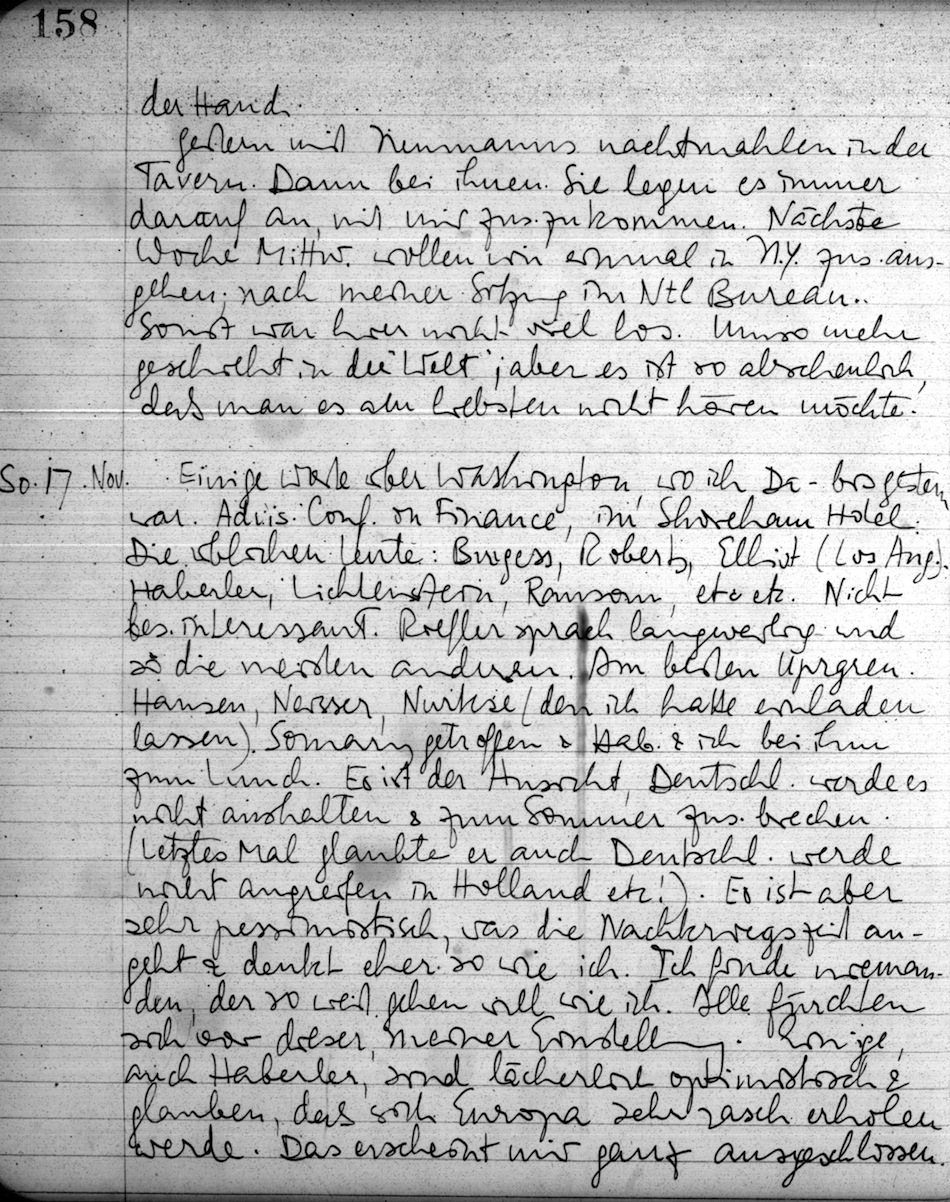 158
der Hand.
Gestern mit Neumanns nachtmahlen in der
Tavern. Dann bei ihnen. Sie legen es immer
darauf an, mit mir zus.zukommen. Nächste
Woche Mittw. wollen wir einmal in N.Y. zus. aus-
gehen; nach meiner Sitzung im Ntl Bureau..
Sonst war hier nicht viel los. Umso mehr
geschieht in der "Welt"; aber es ist so abscheulich,
dass man es am liebsten nicht hören möchte!
So. 17. Nov. Einige Worte über Washington, wo ich Do - bis gestern
war. Advis. Conf. on Finance, im Shoreham Hotel.
Die üblichen Leute: Burgess, Roberts, Elliot (Los Ang).
Haberler, Lichtenstein, Ransom, etc etc. Nicht
bes. interessant. Riefler sprach langweilig und
so die meisten anderen. Am besten Upgren.
Hansen, Neisser, Nurkse (den ich hatte einladen
lassen). Somary getroffen & Hab. & ich bei ihm
zum Lunch. Er ist der Ansicht, Deutschl. werde es
nicht aushalten & zum Sommer zus. brechen.
(Letztes Mal glaubte er auch Deutschl. werde
nicht angreifen in Holland etc!). Er ist aber
sehr pessimistisch, was die Nachkriegszeit an-
geht & denkt eher so wie ich. Ich finde nieman-
den, der so weit gehen will wie ich. Alle fürchten
sich vor dieser, meiner Einstellung. Einige,
auch Haberler, sind lächerlich optimistisch &
glauben, dass sich Europa sehr rasch erholen
werde. Das erscheint mir ganz ausgeschlossen.